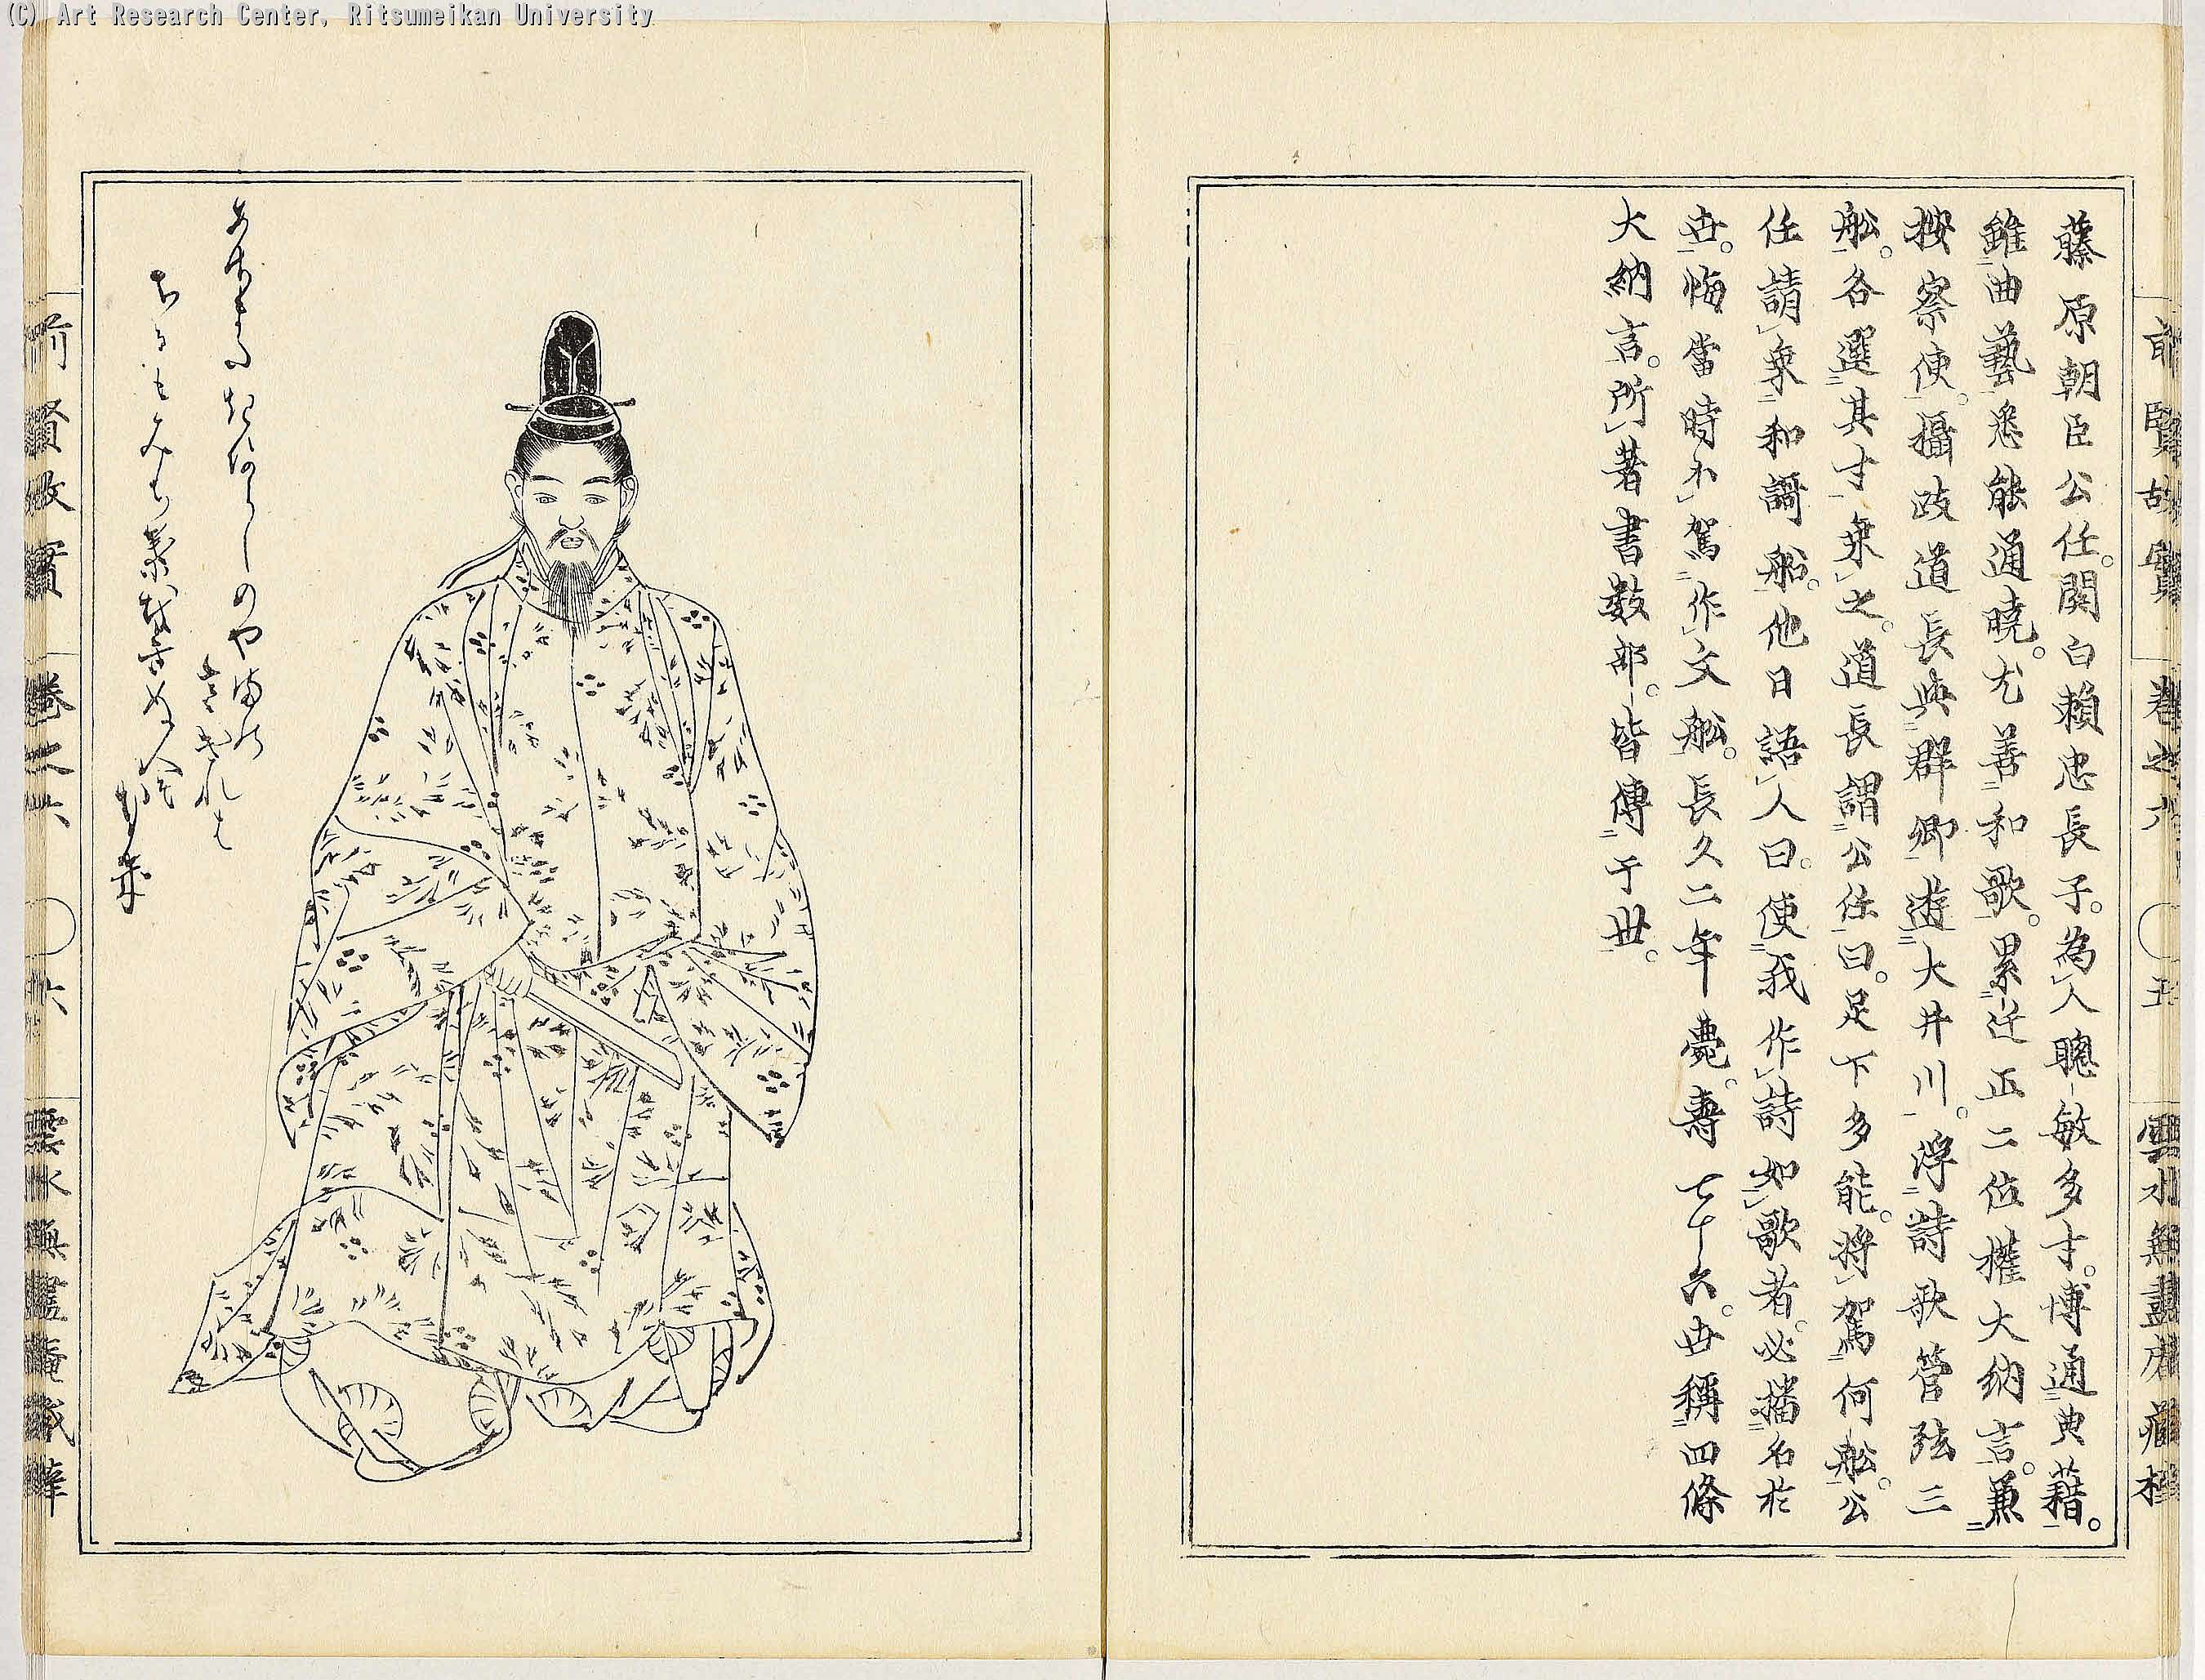 (C) Art Research Center, Ritsumeikan University
前賢故實 巻之六 〇五 雲水無盡庵藏梓
藤原朝臣公任。関白頼忠長子。為人聰敏多才。博通典藉。
雖曲藝悉能通曉。尤善和歌。累迁正二位權大納言。兼
按察使。攝政道長與群卿遊大井川。浮詩歌管弦三
舩。各選其才乗之。道長謂公任曰。足下多能。將駕何舩。公
任請乗和謌船。他日語人曰。使我作詩如歌者。必播名於
世。悔當時不駕作文舩。長久二年薨。壽七十六。世稱四條
大納言。所著書数部。皆傳于世。
あさまたきあらしのやまの
さむけれは
ちるもみち葉をきぬ人そ
なき
前賢故實 巻之六 〇六 雲水無盡庵藏梓